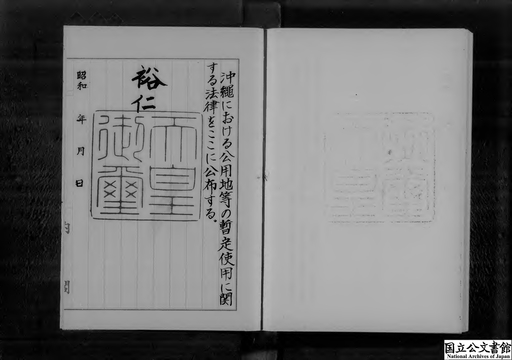 沖縄における公用地等の暫定使用に関
する法律をここに公布する。
裕仁
天皇
御璽
昭和　年　月　日
国立公文書館
National Archives of Japan